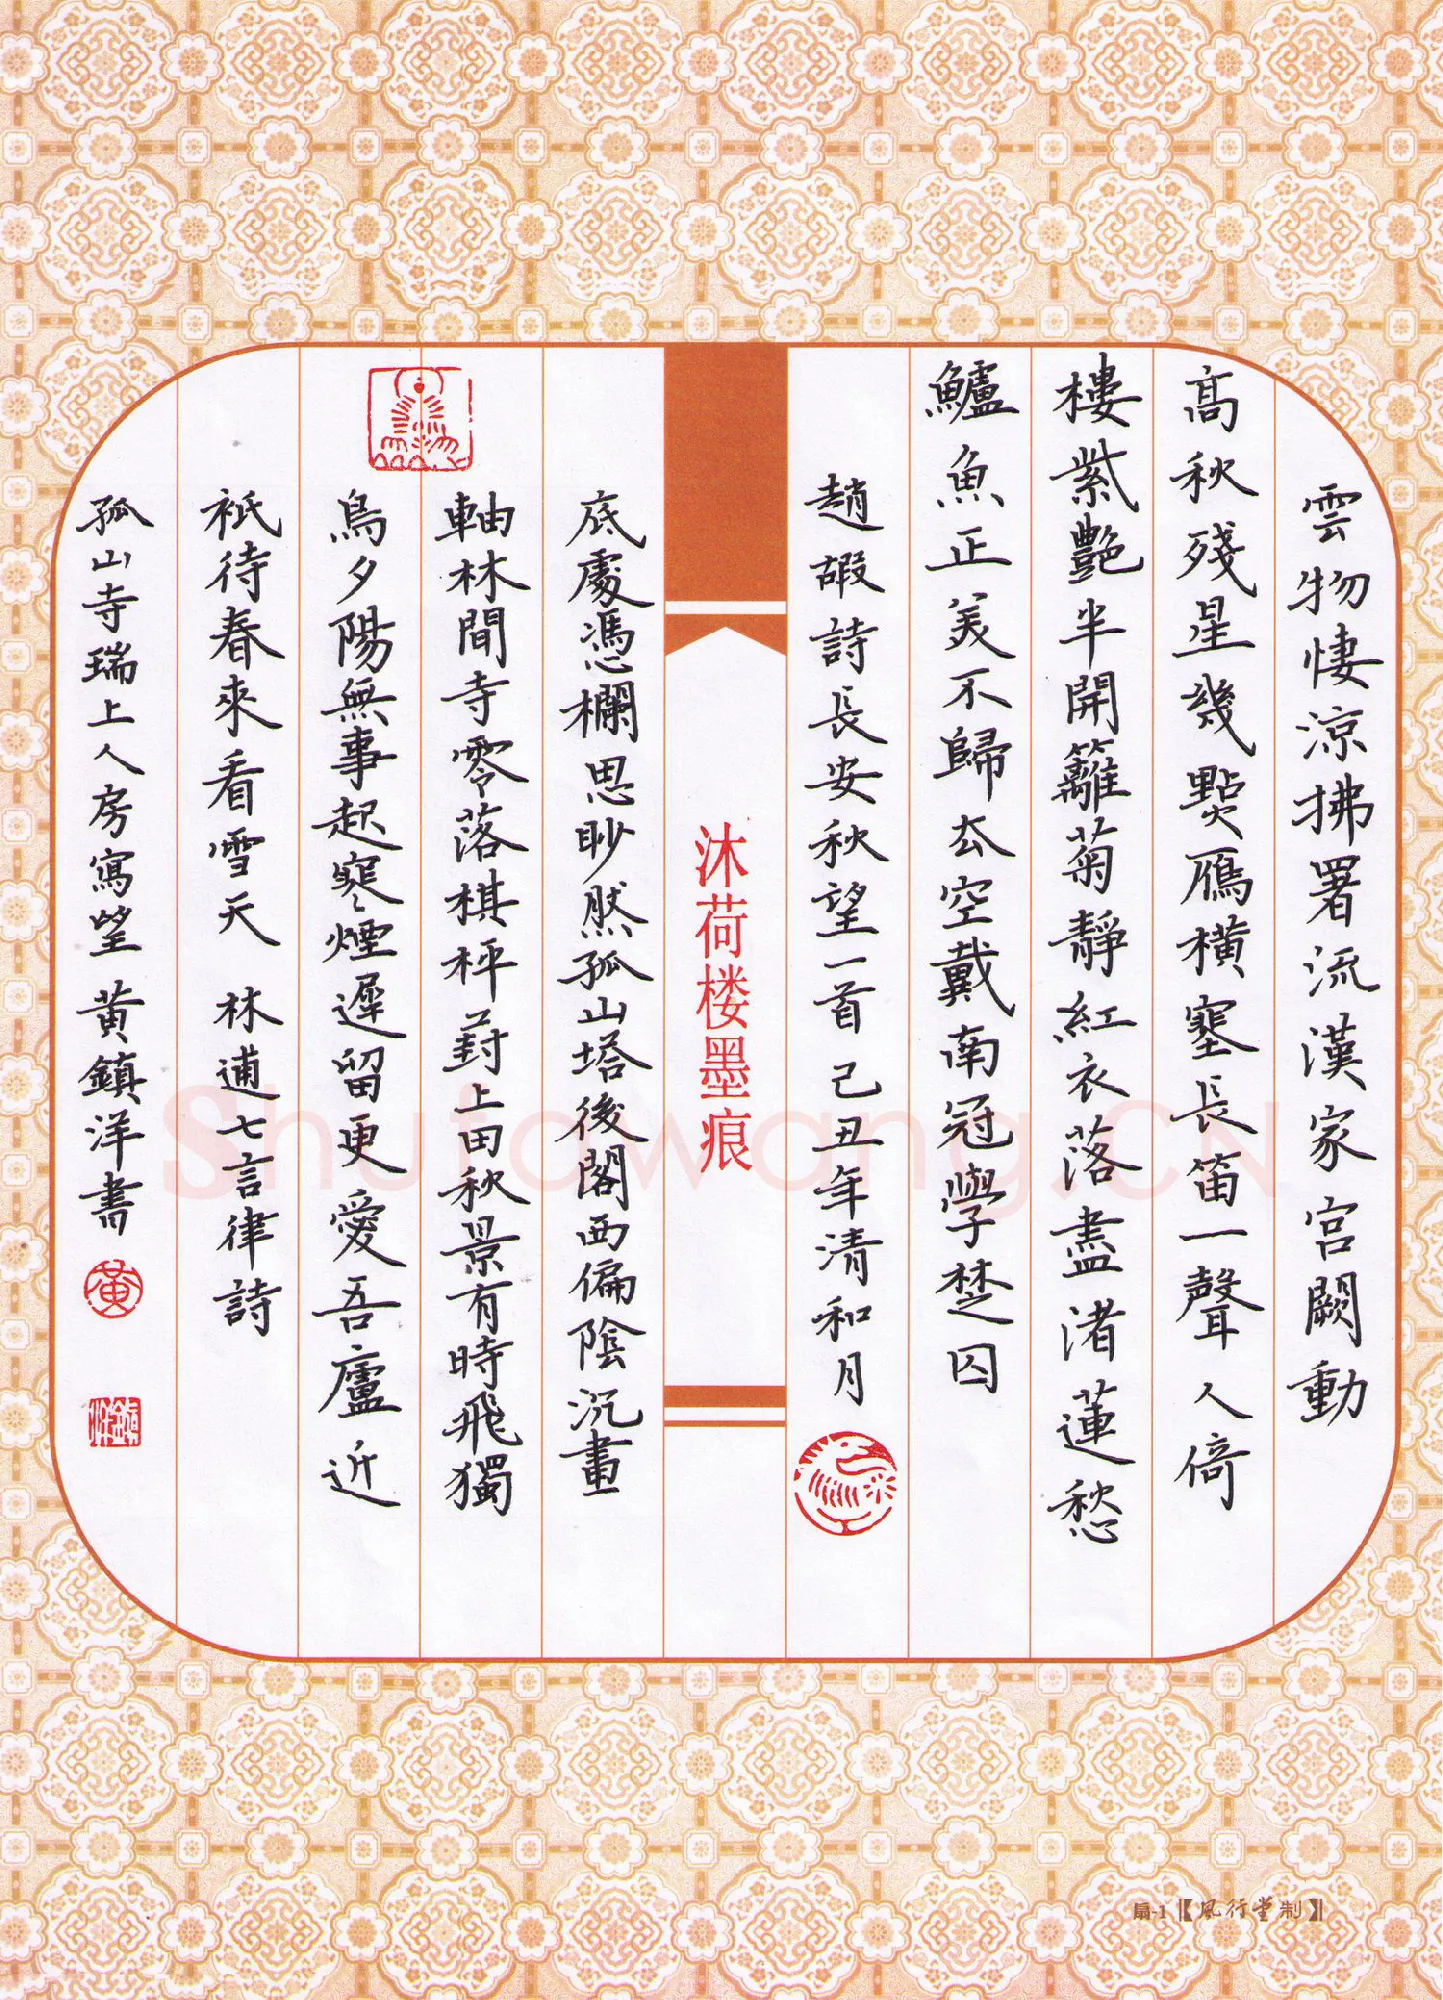 雲物悽涼拂署流漢家宮闕動
高秋殘星幾點雁橫塞長笛一聲人倚
樓紫艷半開籬菊靜紅衣落盡渚蓮愁
鱸魚正美不歸去空戴南冠學楚囚
趙嘏詩長安秋望一首己丑年清和月
沐荷楼墨痕
底處憑欄思眇然孤山塔後閣西偏陰沉畫
軸林間寺零落棋枰葑上田秋景有時飛獨
鳥夕陽無事起寒煙遲留更愛吾廬近
祇待春來看雪天 林逋七言律詩
孤山寺瑞上人房寫望 黃鎮洋書
黃
鎮洋
扇-1【風行堂制】
Shufawang.CN